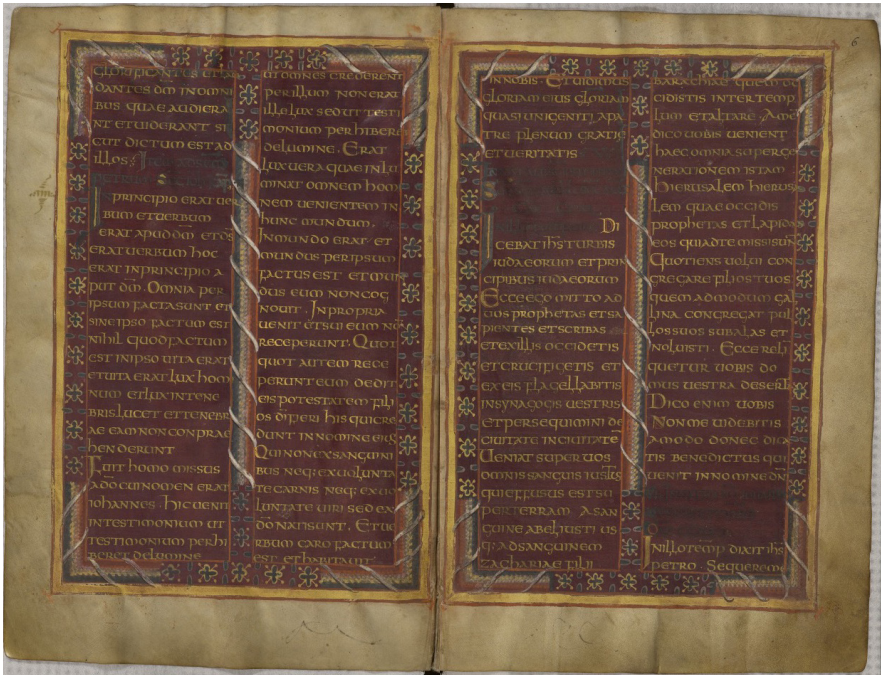 GLORIFICANTES ET LAU
DANTES DM INOMNI
BUS QUAE AUDIERA
NT ETUIDERANT SI
CUT DICTUM EST AD
ILLOS
PRINCIPIO ERAT UER
BUM ETUERBUM
ERAT APUD DM ETDS
ERAT UERBUM HOC
ERAT INPRINCIPIO A
PUT DM. OMNIA PER
IPSUM FACTASUNT ET
SINEIPSO FACTUM EST
NIHIL QUODFACTUM
EST INIPSO UITA ERAT
ETUITA ERAT LUX HOM
NUM ETLUX INTENE
BRIS LUCET ETTENEBR
AE EAM NON CONPRAE
HENDERUNT
FUIT HOMO MISSUS
ADO CUINOMEN ERAT
IOHANNES. HIC UENIT
INTESTIMONIUM UT
TESTIMONIUM PERHI
BERET DELUMINE
UT OMNES CREDERENT
PERILLUM NON ERAT
ILLE LUX SED UT TESTI
MONIUM PERHIBERE
DELUMINE. ERAT
LUX UERA QUAE INLU
MINAT OMNEM HOM
NEM UENIENTEM IN
HUNC MUNDUM.
INMUNDO ERAT ET
MUNDUS PERIPSUM
FACTUS EST ETMUN
DUS EUM NON COG
NOUIT. INPROPRIA
UENIT ETSUI EUM NO
RECEPERUNT. QUOT
QUOT AUTEM RECE
PERUNT EUM DEDIT
EIS POTESTATEM FILI
OS DI FIERI HIS QUICRE
DUNT INNOMINE EIUS
QUINON EXSANGUINI
BUS NEQ: EXUOLUNTA
TE CARNIS NEQ: EXUO
LUNTATE UIRI SED EX
DO NATISUNT. ETUE
RBUM CARO FACTUM
EST ETHABITAUIT
INNOBIS. ETUIDIMUS
GLORIAM EIUS GLORIAM
QUASI UNIGENITI APA
TRE PLENUM GRATIE
ETUERITATIS
DI
CEBAT IHS TURBIS
IUDAEORUM ET PRIN
CIPIBUS IUDAEORUM
ECCE EGO MITTO AD
UOS PROPHETAS ET SA
PIENTES ETSCRIBAS
ETEXILLIS OCCIDETIS
ETCRUCIFIGETIS ET
EXEIS FLAGELLABITIS
INSYNAGOGIS UESTRIS
ETPERSEQUIMINI DE
CIUITATE INCIUITATE
UENIAT SUPERUOS
OMNIS SANGUIS IUSTUS
QUIEFFUSUS ESTSU
PERTERRAM ASAN
GUINE ABEL IUSTI US
Q: AD SANGUINEM
ZACHARIAE FILII
BARACHIAE QUEM OC
CIDISTIS INTER TEMP
LUM ETALTARE. AMEN
DICO UOBIS UENIENT
HAEC OMNIA SUPERGE
NERATIONEM ISTAM
HIERUSALEM HIERUSA
LEM QUAE OCCIDIS
PROPHETAS ETLAPIDAS
EOS QUIADTE MISSISUNT
QUOTIENS UOLUI CON
GREGARE FILIOS TUOS
QUEM ADMODUM GAL
LINA CONGREGAT PUL
LOS SUOS SUBALAS ET
NOLUISTI. ECCE RELIN
QUETUR UOBIS DO
MUS UESTRA DESERTA
DICO ENIM UOBIS
NON ME UIDEBITIS
AMODO DONEC DICA
TIS BENEDICTUS QUI
UENIT INNOMINE DNI
INILLO TEMP DIXIT IHS
PETRO. SEQUEREME
6